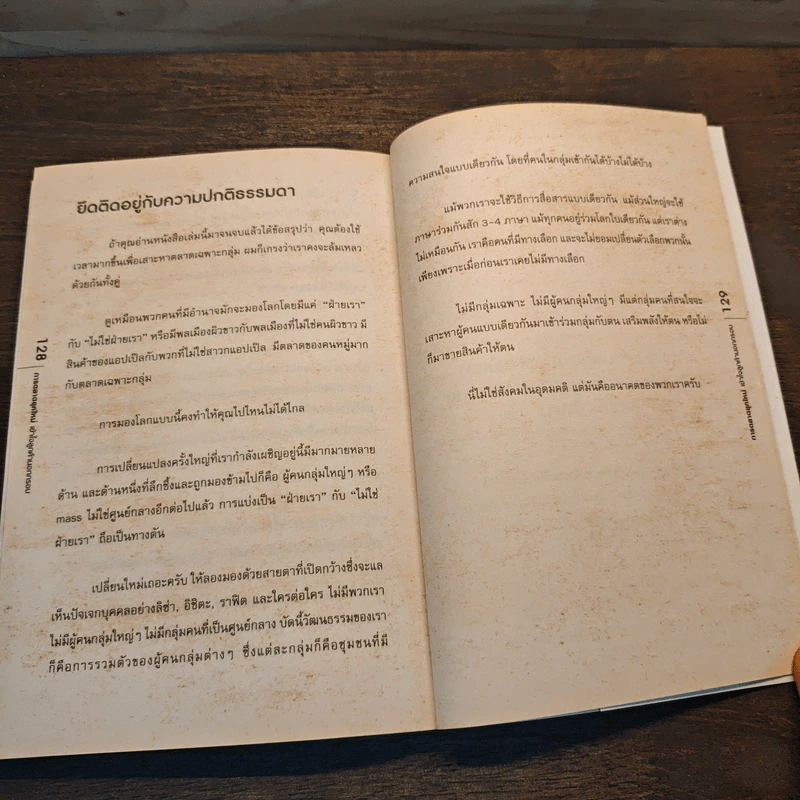 ยึดติดอยู่กับความปกติธรรมดา
ถ้าคุณอ่านหนังสือเล่มนี้มาจนจบแล้วได้ข้อสรุปว่า คุณต้องใช้
เวลามากขึ้นเพื่อเสาะหาตลาดเฉพาะกลุ่ม ผมก็เกรงว่าเราคงจะล้มเหลว
ด้วยกันทั้งคู่
ดูเหมือนพวกคนที่มีอำนาจมักจะมองโลกโดยมีแค่ “ฝ่ายเรา”
กับ “ไม่ใช่ฝ่ายเรา” หรือมีพลเมืองผิวขาวกับพลเมืองที่ไม่ใช่คนผิวขาว มี
สินค้าของแอปเปิลกับพวกที่ไม่ใช่สาวกแอปเปิล มีตลาดของคนหมู่มาก
กับตลาดเฉพาะกลุ่ม
การมองโลกแบบนี้คงทำให้คุณไปไหนไม่ได้ไกล
การเปลี่ยนแปลงครั้งใหญ่ที่เรากำลังเผชิญอยู่นี้มีมากมายหลาย
ด้าน และด้านหนึ่งที่ลึกซึ้งและถูกมองข้ามไปก็คือ ผู้คนกลุ่มใหญ่ๆ หรือ
mass ไม่ใช่ศูนย์กลางอีกต่อไปแล้ว การแบ่งเป็น “ฝ่ายเรา” กับ “ไม่ใช่
ฝ่ายเรา” ถือเป็นทางตัน
เปลี่ยนใหม่เถอะครับ ให้ลองมองด้วยสายตาที่เปิดกว้างซึ่งจะแล
เห็นปัจเจกบุคคลอย่างลิซ่า, อิชิตะ, ราฟิต และใครต่อใคร ไม่มีพวกเรา
ไม่มีผู้คนกลุ่มใหญ่ๆ ไม่มีกลุ่มคนที่เป็นศูนย์กลาง บัดนี้วัฒนธรรมของเรา
ก็คือการรวมตัวของผู้คนกลุ่มต่างๆ ซึ่งแต่ละกลุ่มก็คือชุมชนที่มี
128
การตลาดยุคใหม่ เข้าใจลูกค้านอกกรอบ
ความสนใจแบบเดียวกัน โดยที่คนในกลุ่มเข้ากันได้บ้างไม่ได้บ้าง
แม้พวกเราจะใช้วิธีการสื่อสารแบบเดียวกัน แม้ส่วนใหญ่จะใช้
ภาษาร่วมกันสัก 3-4 ภาษา แม้ทุกคนอยู่ร่วมโลกใบเดียวกัน แต่เราต่าง
ไม่เหมือนกัน เราคือคนที่มีทางเลือก และจะไม่ยอมเปลี่ยนตัวเลือกพวกนั้น
เพียงเพราะเมื่อก่อนเราเคยไม่มีทางเลือก
ไม่มีกลุ่มเฉพาะ ไม่มีผู้คนกลุ่มใหญ่ๆ มีแต่กลุ่มคนที่สนใจจะ
เสาะหาผู้คนแบบเดียวกันมาเข้าร่วมกลุ่มกับตน เสริมพลังให้ตน หรือไม่
ก็มาขายสินค้าให้ตน
นี่ไม่ใช่สังคมในอุดมคติ แต่มันคืออนาคตของพวกเราครับ
129
การตลาดยุคใหม่ เข้าใจลูกค้านอกกรอบ